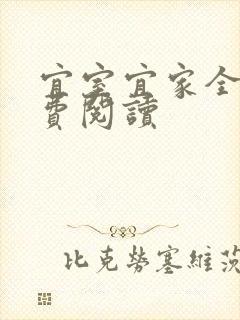 宜室宜家全
費閱讀
比克勞塞維茨